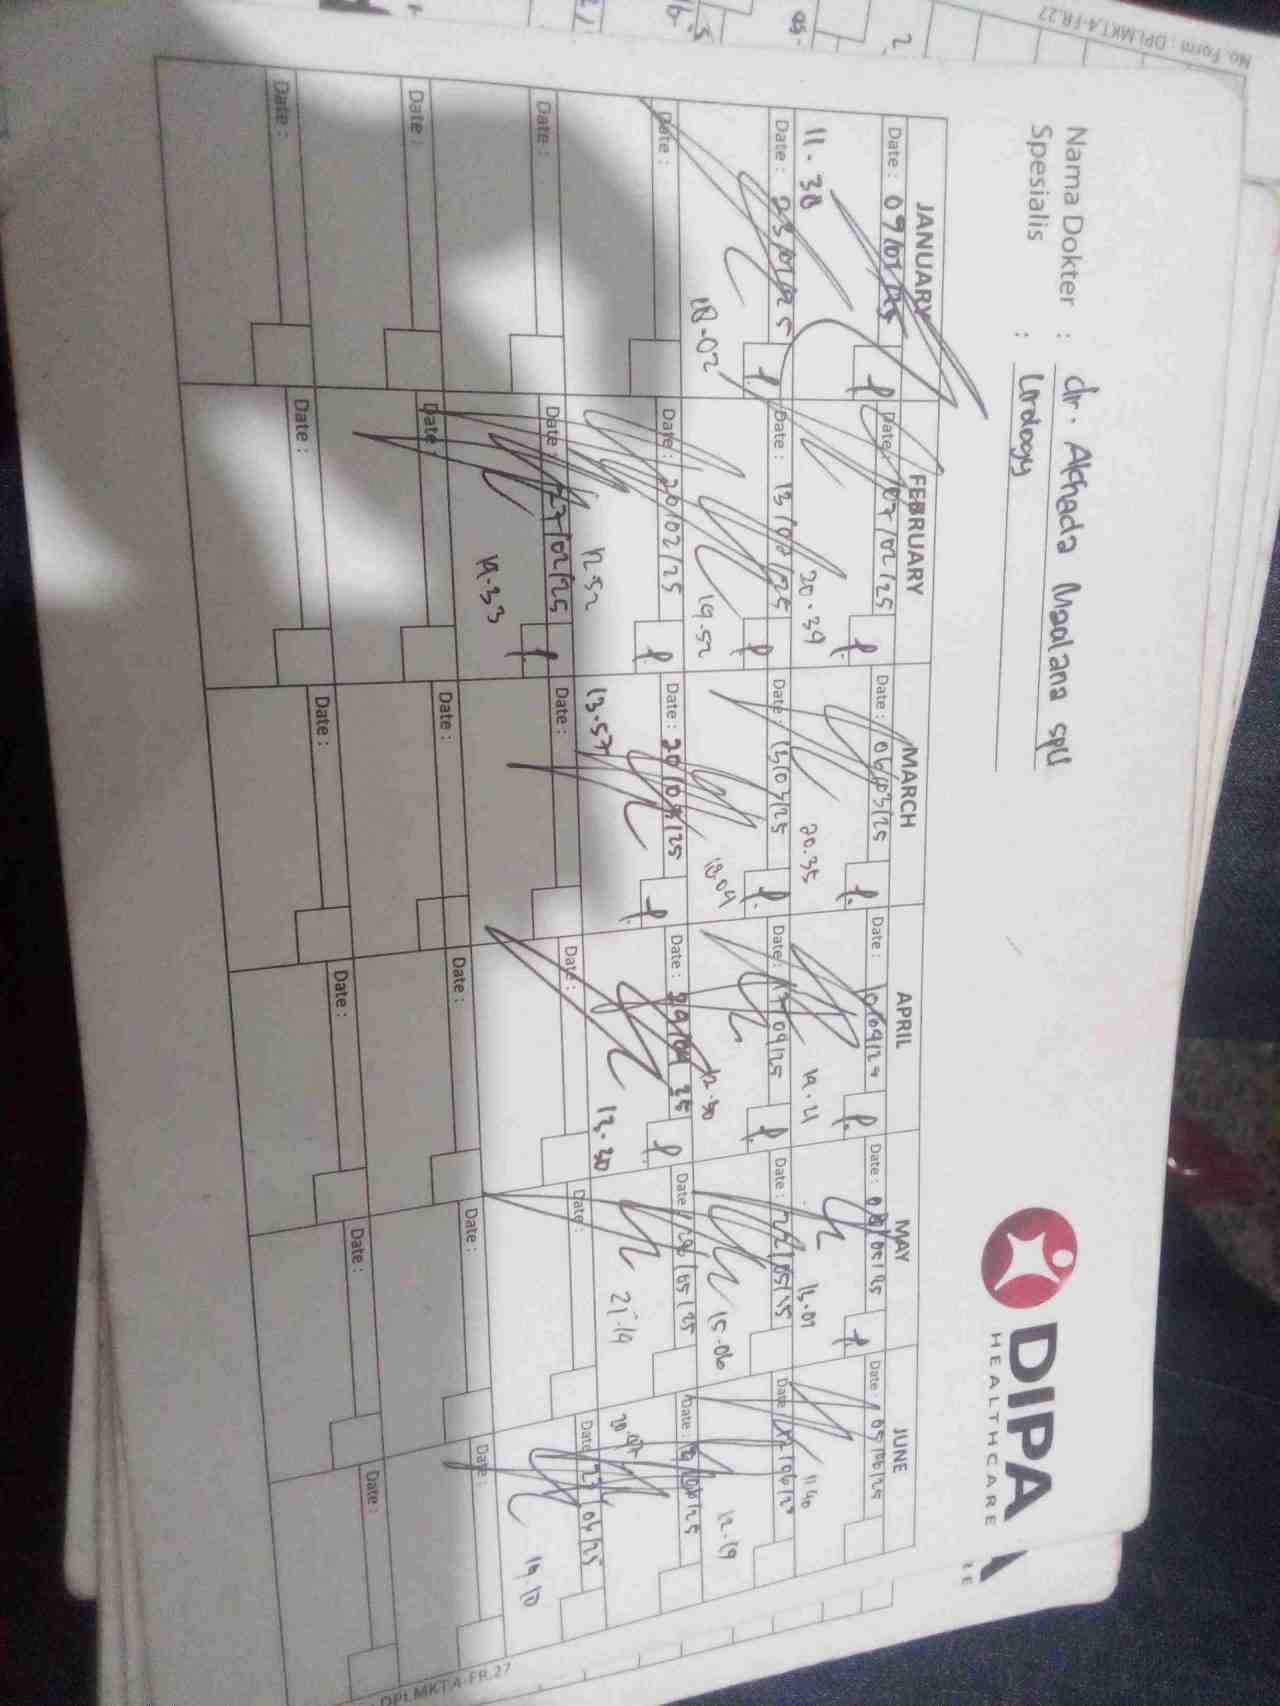 No. Form : DPI.MKT.4-FR.27
DIPA
HEALTHCARE
Nama Dokter : dr. Akhada Maulana SpU
Spesialis : Urology
JANUARY FEBRUARY MARCH APRIL MAY JUNE
Date : 09/01/25 Date : 07/02/25 Date : 06/03/25 Date : Date : Date : 05/06/25
11.38 20.39 20.35 13.01 11.40
Date : 23/01/25 Date : 13/02/25 Date : 13/03/25 Date : Date : 22/05/25 Date :
18.02 19.52 18.04 12.30 15.06 12.19
Date : Date : 20/02/25 Date : 20/03/25 Date : 29/04/25 Date : Date :
12.52 13.57 13.30 21.19
Date : Date : 27/02/25 Date : Date : Date : Date :
19.33 19.10
Date : Date : Date : Date : Date : Date :
Date : Date : Date : Date : Date : Date :
DPI.MKT.4-FR.27